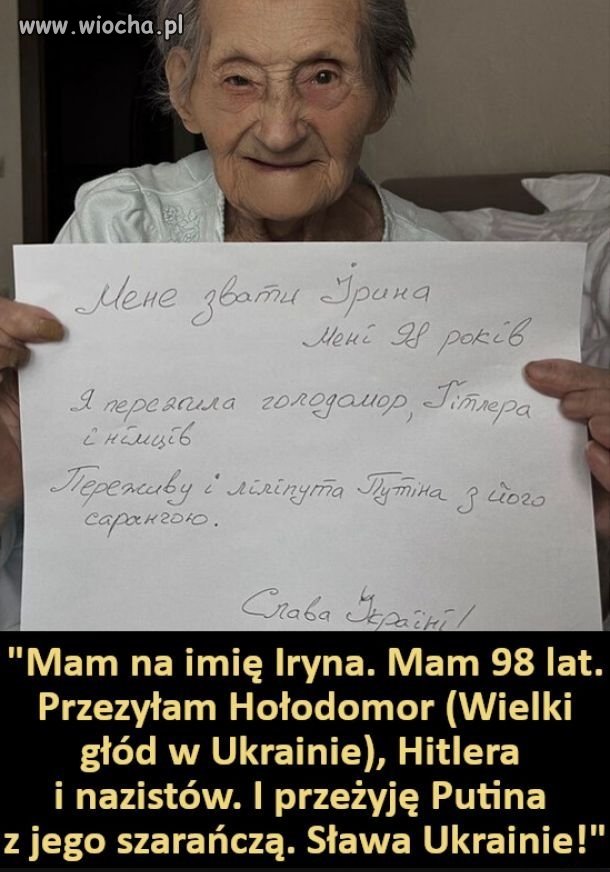 www.wiocha.pl
Мене звати Ірина
Мені 98 років
Я пережила голодомор, Гітлера
і німців
Переживу і ліліпута Путіна з його
саранчою.
Слава Україні!
"Mam na imię Iryna. Mam 98 lat.
Przezyłam Hołodomor (Wielki
głód w Ukrainie), Hitlera
i nazistów. I przeżyję Putina
z jego szarańczą. Sława Ukrainie!"